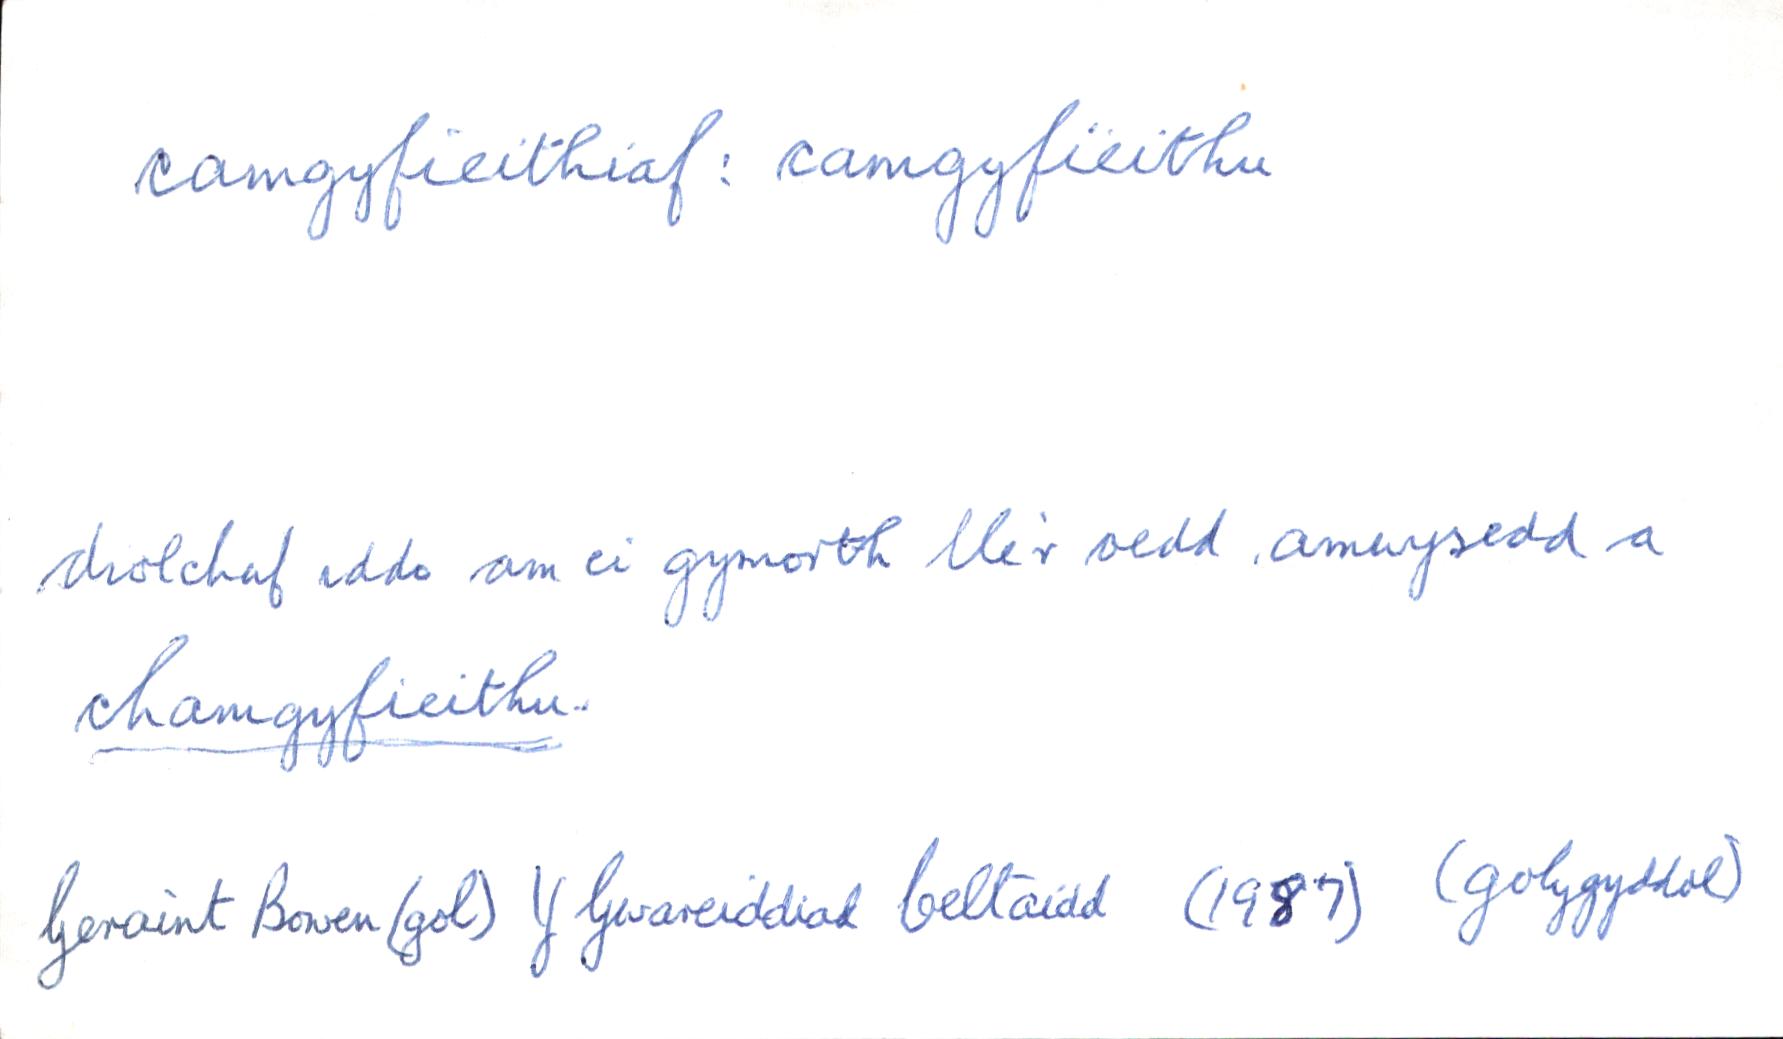 camgyfieithiaf: camgyfïeithu
diolchaf iddo am ei gymorth lle'r oedd amwysedd a
chamgyfieithu.
Geraint Bowen (gol) Y Gwareiddiad Celtaidd (1987) (golygyddol)